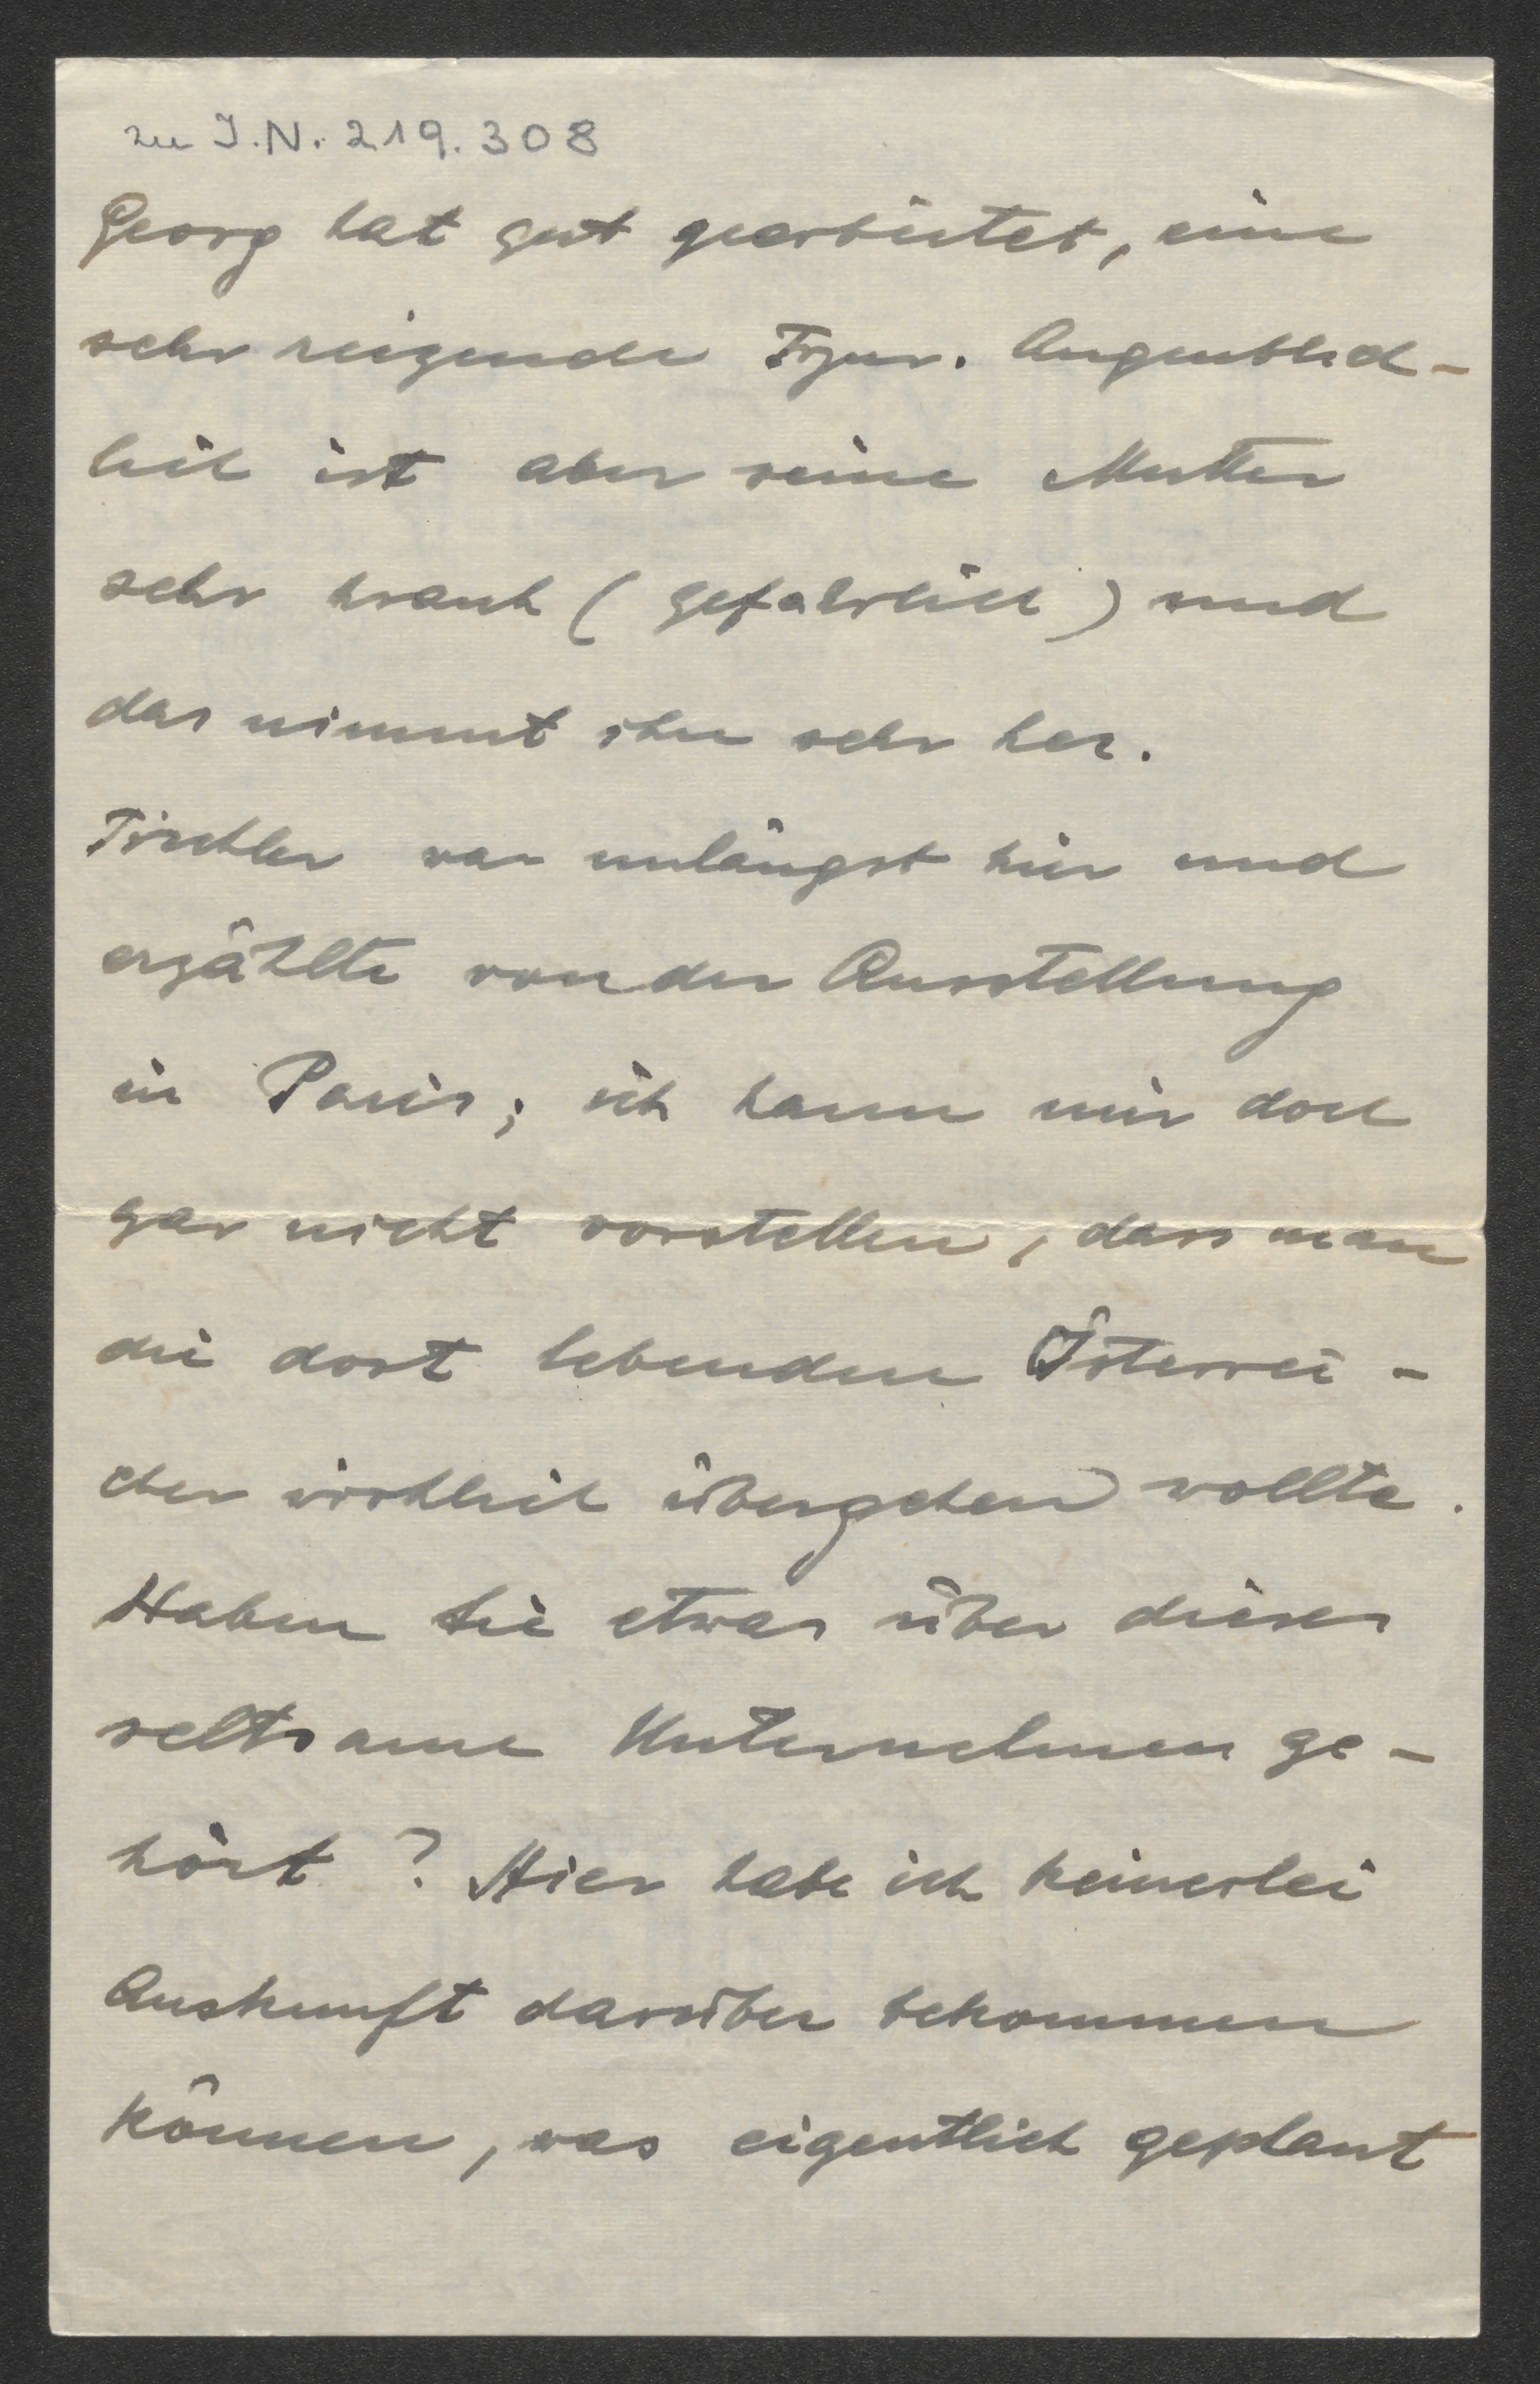 zu I.N. 219.308
Georg hat gut gearbeitet, eine
sehr reizende Figur. Augenblick-
lich ist aber seine Mutter
sehr krank (gefährlich) und
das nimmt ihn sehr her.
Tischler war unlängst hier und
erzählte von der Ausstellung
in Paris; ich kann mir doch
gar nicht vorstellen, dass man
die dort lebenden Österrei-
cher wirklich übergehen wollte.
Haben Sie etwas über dieses
seltsame Unternehmen ge-
hört? Hier habe ich keinerlei
Auskunft darüber bekommen
können, was eigentlich geplant